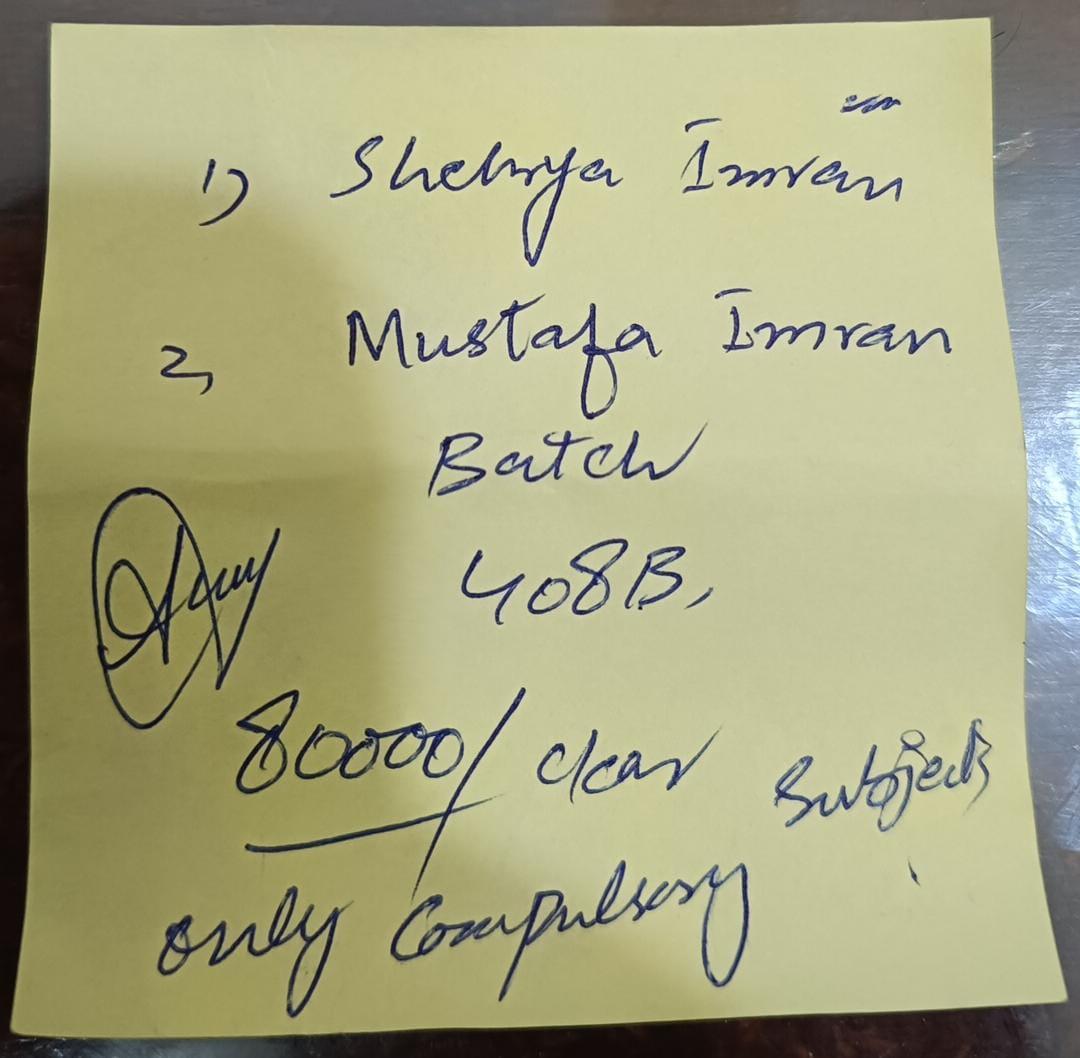 1) Shehrya Imran
2, Mustafa Imran
Batch
408B,
80000/ clear subjects
only Compulsory